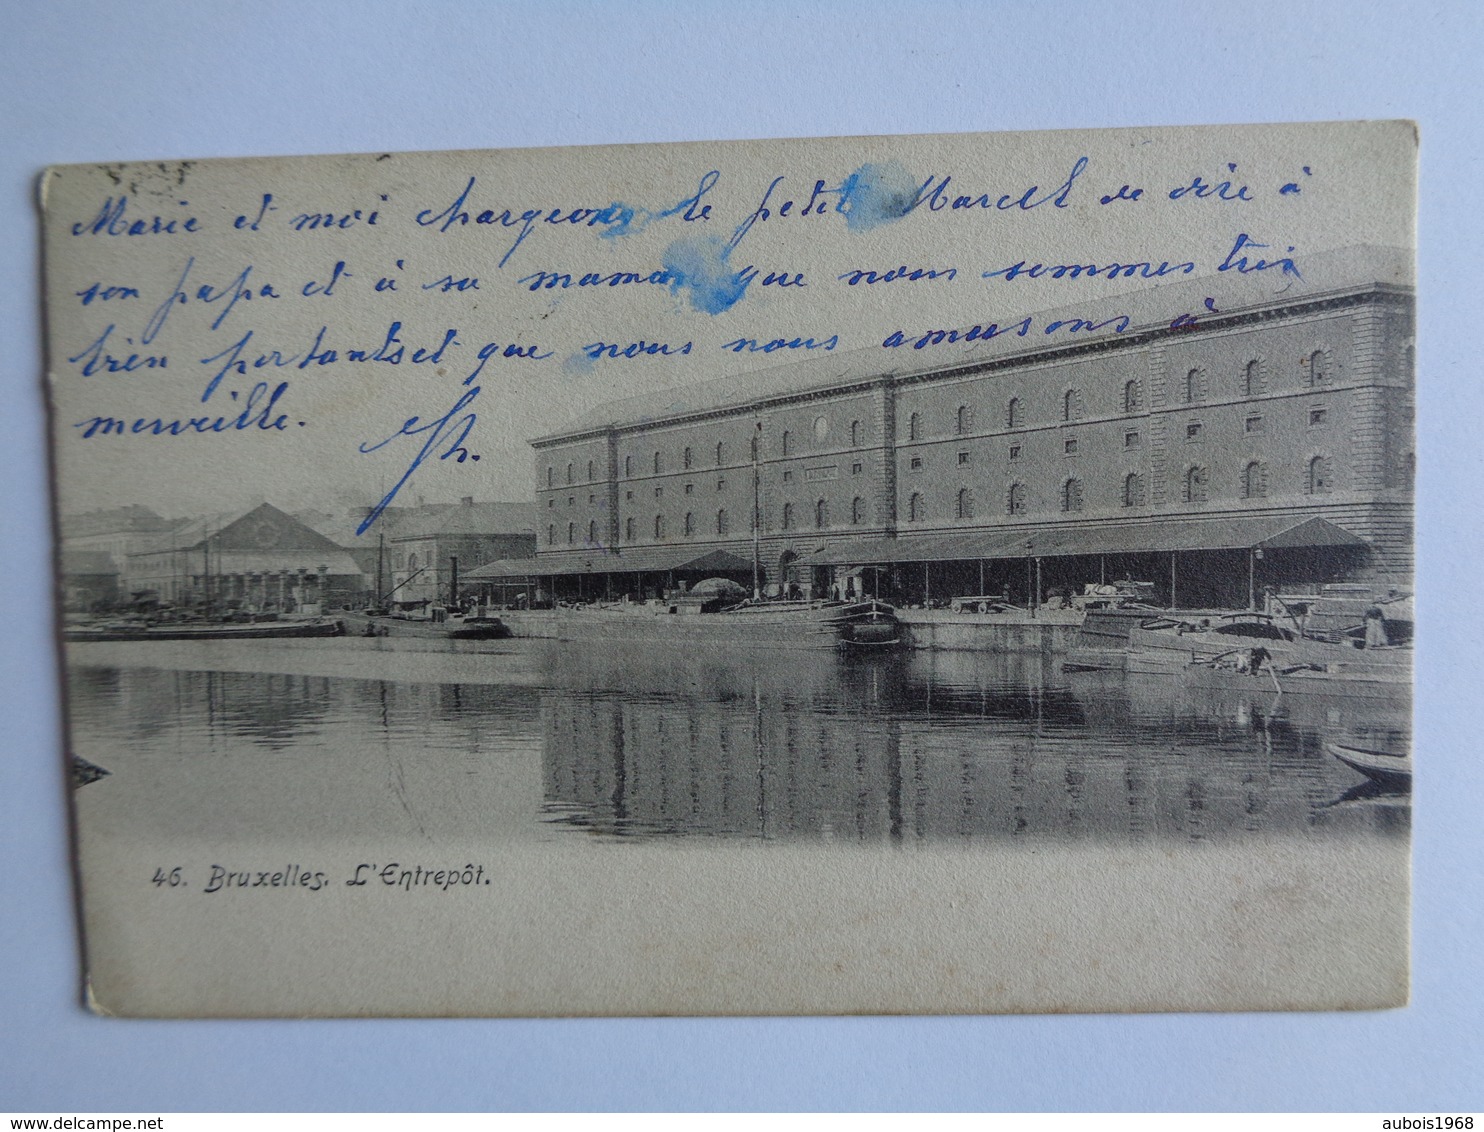 Marie et moi chargeons le petit Marcell de dire à
son papa et à sa maman que nous sommes très
bien portants et que nous nous amusons à
merveille.
46. Bruxelles. L'Entrepôt.
delcampe.net
aubois1968